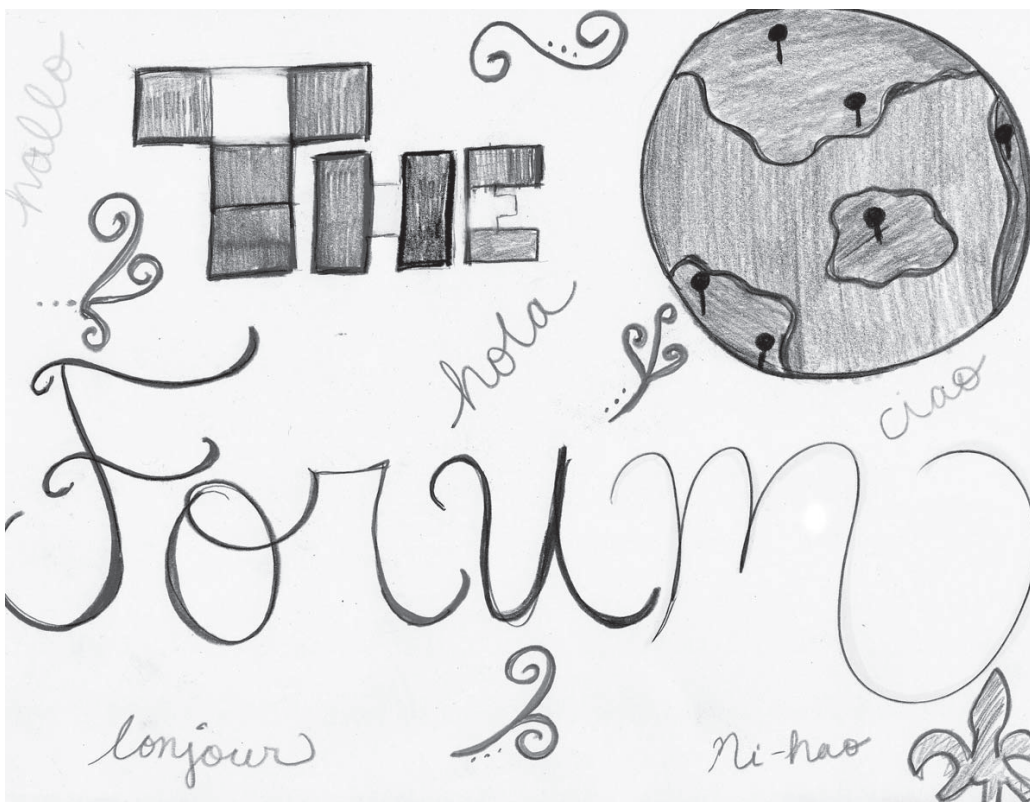 hallo
THE
hola
ciao
Forum
bonjour
Ni-hao